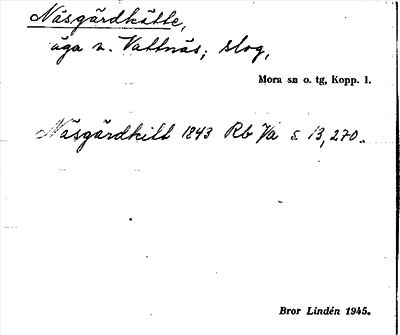 Näsgärdkätte,
äga n. Vattnäs; skog,
Mora sn o. tg, Kopp. l.
Näsgärdkilt 1843 Rb Va s 13,270.
Bror Lindén 1945.